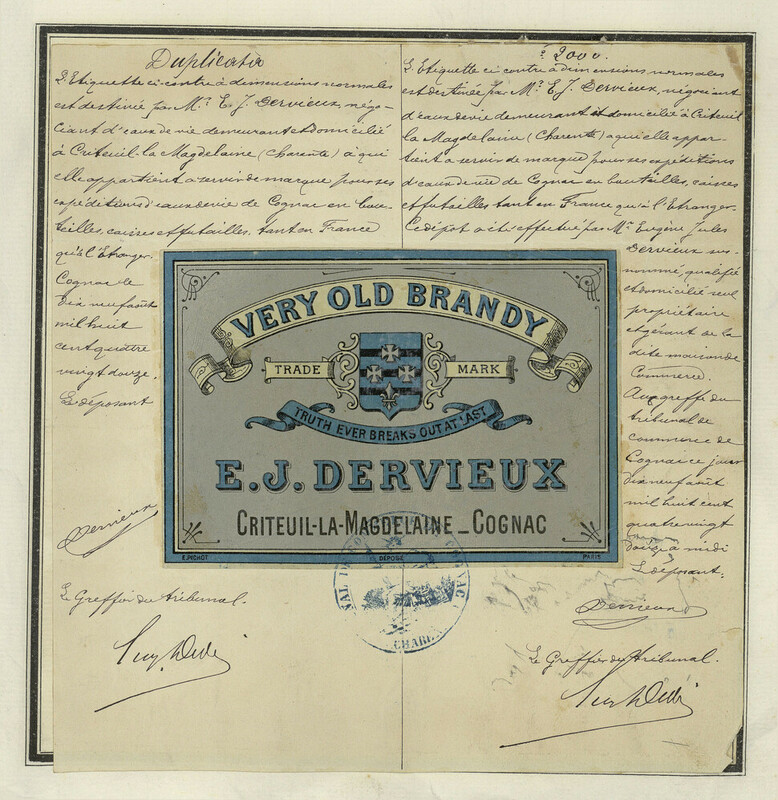 Duplicata
L'Etiquette ci-contre à dimensions normales
est destinée par Mr. E. J. Dervieux, négo-
ciant d'eaux de vie demeurant et domicilié
à Criteuil-la-Magdelaine (Charente) à qui
elle appartient a servir de marque pour ses
expéditions d'eaux de vie de Cognac en bou-
teilles, caisses et futailles, tant en France
qu'à l'Etranger.
Cognac le
dix neuf août
mil huit
cent quatre
vingt douze.
Le déposant
Dervieux
Le Greffier du tribunal.
2000.
L'Etiquette ci contre à dimensions normales
est destinée par Mr. E. J. Dervieux, négociant
d'eaux de vie demeurant et domicilié à Criteuil
la Magdelaine (Charente) a qui elle appar-
tient a servir de marque pour ses expéditions
d'eaux de vie de Cognac en bouteilles, caisses
et futailles tant en France qu'à l'Etranger.
Ce dépot a été effectué par Mr. Eugène Jules
Dervieux sus-
nommé, qualifié
et domicilié seul
propriétaire
et gérant de la
dite maison de
Commerce.
Au greffe du
tribunal de
commerce de
Cognac ce jour
dix neuf août
mil huit cent
quatre vingt
douze à midi
Le déposant.
Dervieux
Le Greffier du tribunal.
VERY OLD BRANDY
TRADE MARK
TRUTH EVER BREAKS OUT AT LAST
E.J. DERVIEUX
CRITEUIL-LA-MAGDELAINE_COGNAC
E. PICHOT DÉPOSÉ PARIS